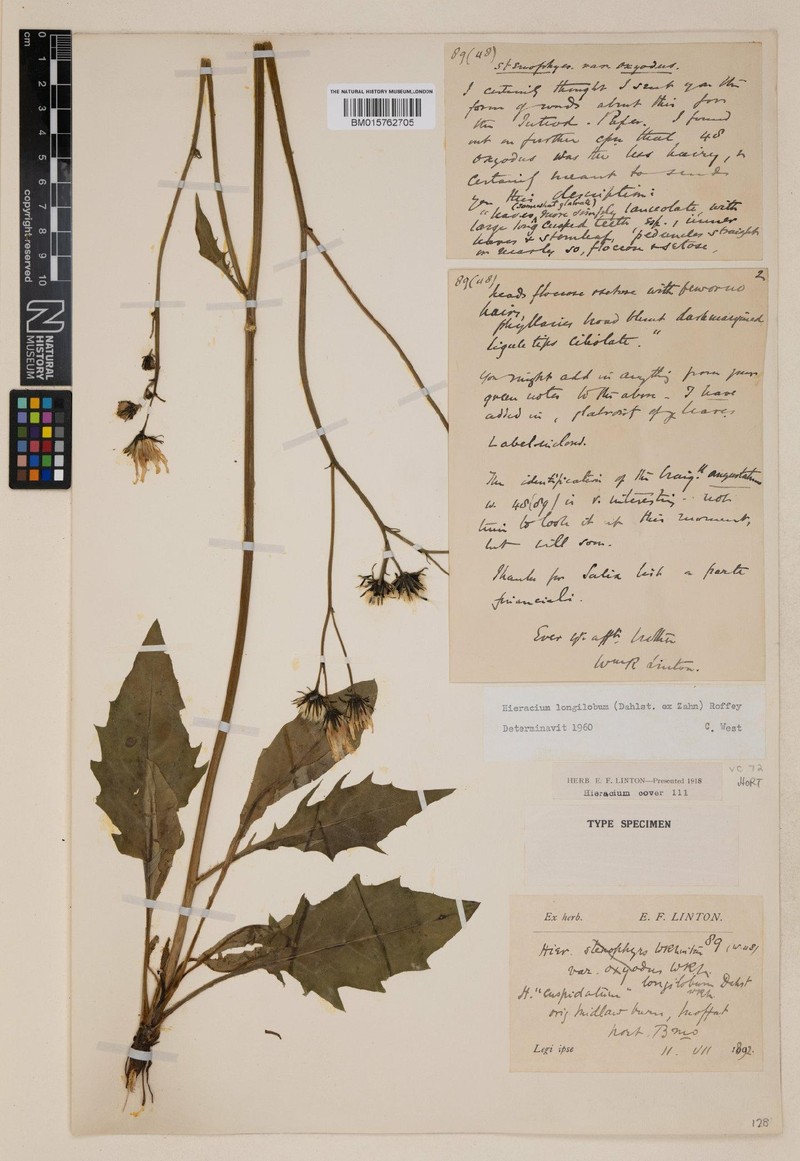 cm
0
1
2
3
4
5
6
7
8
9
10
copyright reserved
NATURAL
HISTORY
MUSEUM
THE NATURAL HISTORY MUSEUM, LONDON
BM015762705
89(48)
stenophyes. var oxyodus.
I certainly thought I sent you this
form of words about this for
the Introd. Paper. I found
out on further cpn that 48
oxyodus was the less hairy, &
certainly meant to send
you this description:
(somewhat glabrate)
"leaves, more simply lanceolate, with
large long cusped teeth esp., inner
leaves & stemleaf, peduncles straight
or nearly so, floccose & setose,
89(48)
2
heads floccose setose with few or no
hairs,
phyllaries broad blunt dark margined
ligule tips ciliolate."
You might add in anything from your
green notes to the above - I have
added in, of leaves
Label enclosed.
The identification of the "angustatum
w. 48(89) is v. interesting - not
time to look it up this moment,
but will soon.
Thanks for Salix list & parte
financiali.
Ever yr. afft. brother
WmR Linton.
Hieracium longilobum (Dahlst. ex Zahn) Roffey
Determinavit 1960 C. West
HERB. E. F. LINTON—Presented 1918
Hieracium cover 111
VC 72
HORT
TYPE SPECIMEN
Ex herb. E. F. LINTON.
Hier. stenophyes WRLinton 89 (W. 48)
var. oxyodus WRL.
longilobum Dahlst
H. "cuspidatum" WRL
orig Midlaw burn, Moffat
hort. Bmo
Legi ipse 11. VII 1892.
128